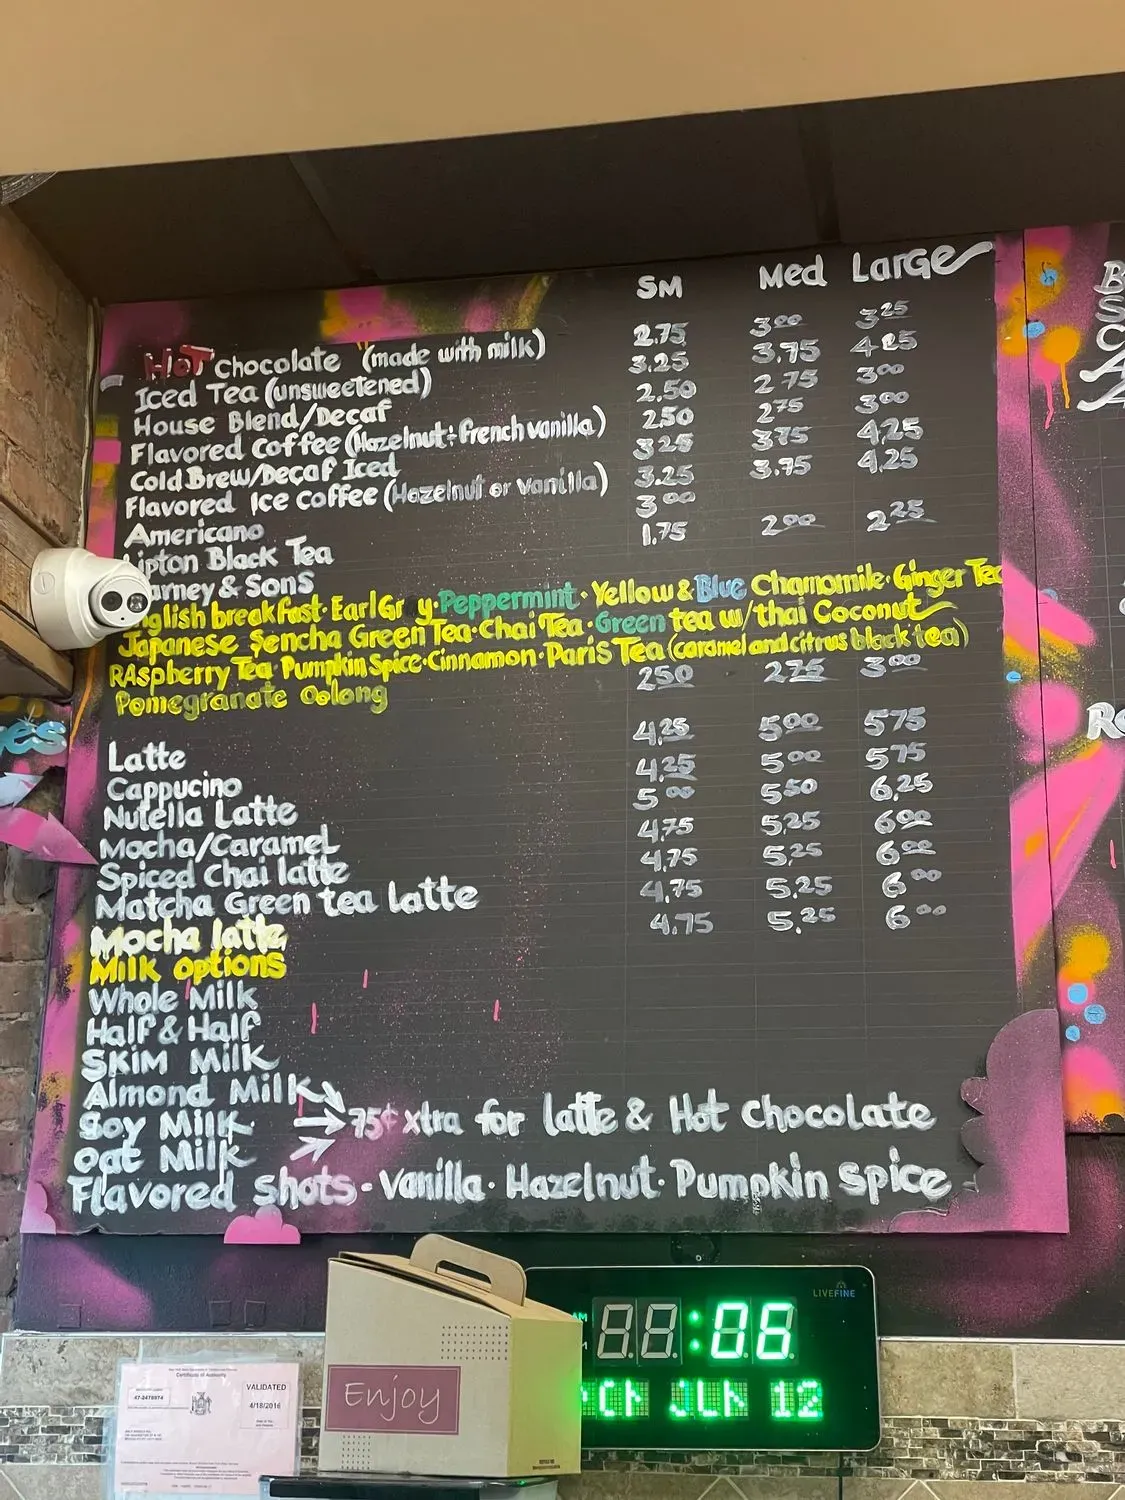 SM Med Large
Hot Chocolate (made with milk) 2.75 3.00 3.25
Iced Tea (unsweetened) 3.25 3.75 4.25
House Blend/Decaf 2.50 2.75 3.00
Flavored Coffee (Hazelnut + french vanilla) 2.50 2.75 3.00
Cold Brew/Decaf Iced 3.25 3.75 4.25
Flavored Ice Coffee (Hazelnut or vanilla) 3.25 3.75 4.25
Americano 3.00
Lipton Black Tea 1.75 2.00 2.25
arney & Sons
nglish breakfast · Earl Gr y · Peppermint · Yellow & Blue Chamomile · Ginger Tea
Japanese Sencha Green Tea · Chai Tea · Green tea w/thai Coconut
RAspberry Tea · Pumpkin Spice · Cinnamon · Paris Tea (caramel and citrus black tea)
Pomegranate Oolong 2.50 2.75 3.00
Latte 4.25 5.00 5.75
Cappucino 4.25 5.00 5.75
Nutella Latte 5.00 5.50 6.25
Mocha/Caramel 4.75 5.25 6.00
Spiced Chai latte 4.75 5.25 6.00
Matcha Green tea Latte 4.75 5.25 6.00
Mocha latte 4.75 5.25 6.00
Milk options
Whole Milk
Half & Half
SKiM MiLK
Almond Milk
Soy Milk 75¢ xtra for latte & Hot chocolate
oat Milk
Flavored shots - Vanilla · Hazelnut · Pumpkin spice
es
Re
LIVEFINE
:06
JUN 12
Enjoy
Certificate of Authority
VALIDATED
4/18/2016